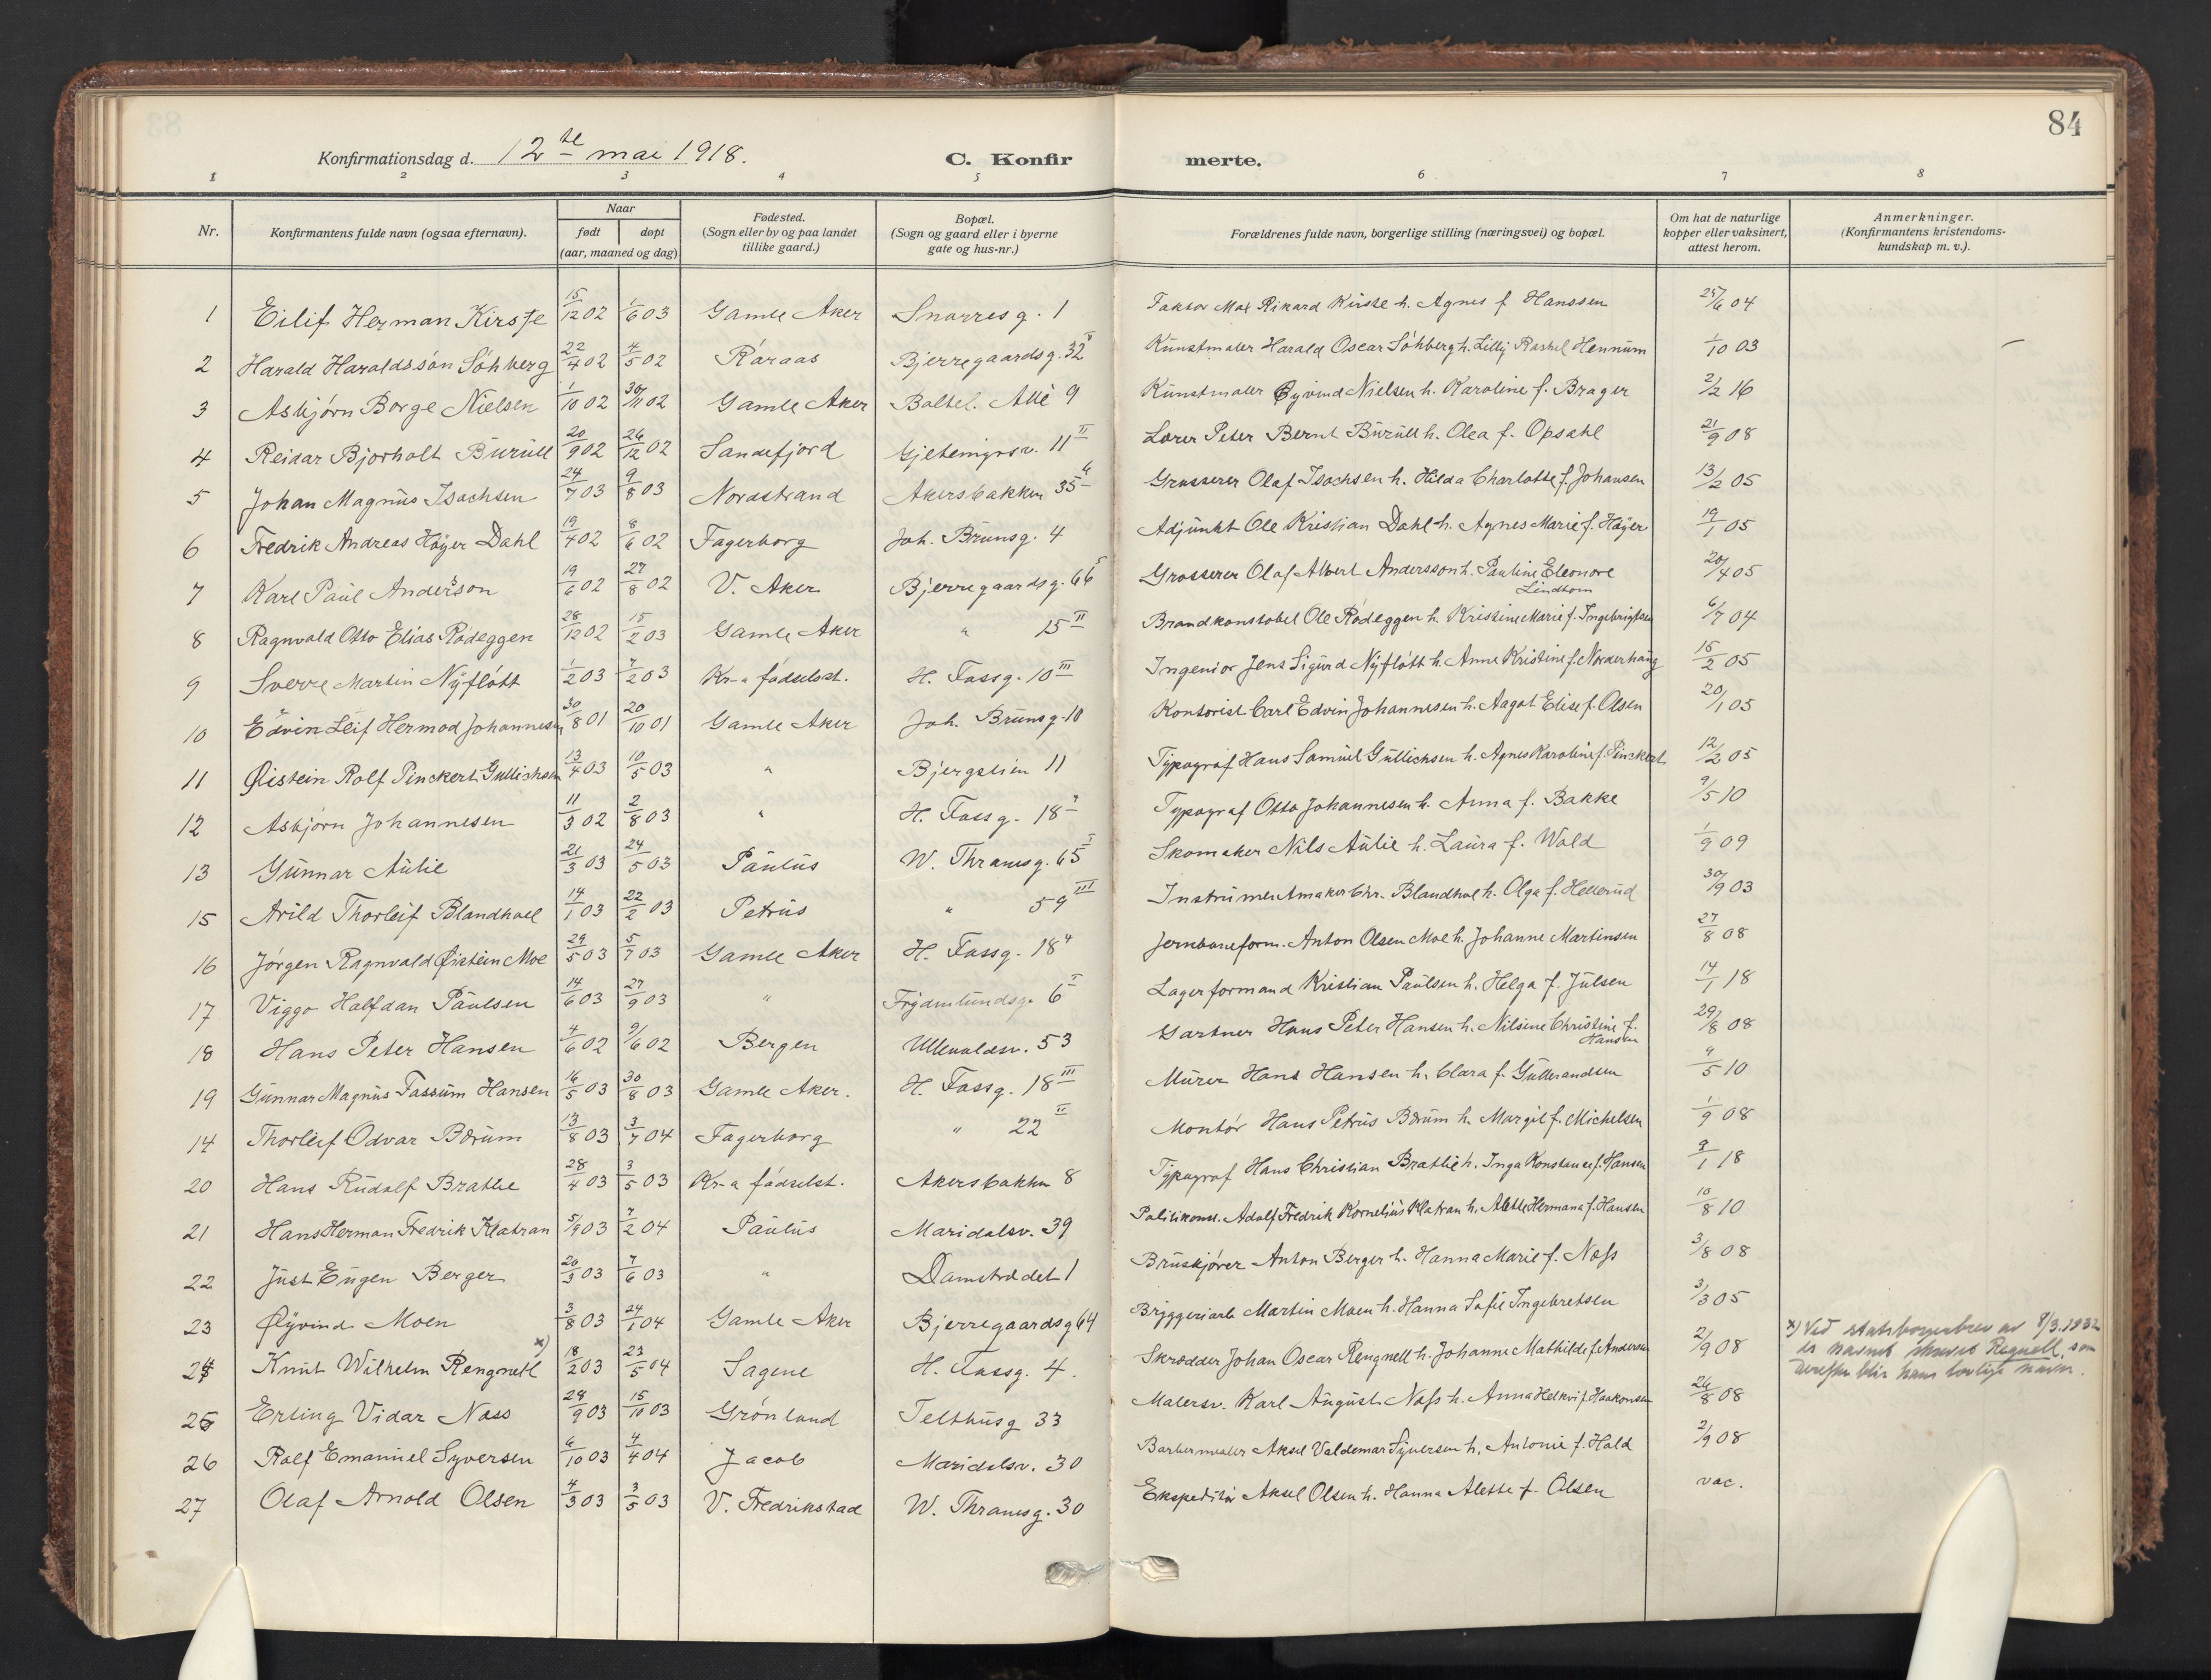 84
Konfirmationsdag d. 12te mai 1918. C. Konfir merte.
1 2 3 4 5 6 7 8
Nr. Konfirmantens fulde navn (ogsaa efternavn). Naar født døpt (aar, maaned og dag) Fødested. (Sogn eller by og paa landet tillike gaard.) Bopæl. (Sogn og gaard eller i byerne gate og hus-nr.) Forældrenes fulde navn, borgerlige stilling (næringsvei) og bopæl. Om hat de naturlige kopper eller vaksinert, attest herom. Anmerkninger. (Konfirmantens kristendoms- kundskap m. v.).
1 Eilif Herman Kirste 15/12 02 1/6 03 Gamle Aker Snorresg. 1 Faktor Max Rikard Kirste h. Agnes f Hanssen 25/6 04
2 Harald Haraldssøn Sohberg 22/4 02 4/5 02 Røraas Bjerregaardsg. 32 Kunstmaler Harald Oscar Sohberg h. Lilly Raskel Hennum 1/10 03
3 Asbjørn Borge Nielsen 1/10 02 30/11 02 Gamle Aker Boltel. Alle 9 Kunstmaler Øyvind Nielsen h. Karoline f. Brager 2/2 16
4 Reidar Bjorholt Burull 20/9 02 26/12 02 Sandefjord Gjetemyrsv. 11 II Lærer Peter Bernt Burull h. Olea f. Opsahl 21/9 08
5 Johan Magnus Isachsen 24/7 03 9/8 03 Nordstrand Akersbakken 35 Grosserer Olaf Isachsen h. Hilda Charlotte f. Johansen 13/2 05
6 Fredrik Andreas Høyer Dahl 19/4 02 8/6 02 Fagerborg Joh. Brunsg. 4 Adjunkt Ole Kristian Dahl h. Agnes Marie f. Høyer 19/1 05
7 Karl Paul Anderson 19/6 02 27/8 02 V. Aker Bjerregaardsg. 66 Grosserer Olaf Albert Andersson h. Pauline Eleonore Lindhom 20/4 05
8 Ragnvald Otto Elias Rødeggen 28/12 02 15/2 03 Gamle Aker " 15 II Brandkonstabel Ole Rødeggen h. Kristine Marie f. Ingebrigtsen 6/7 04
9 Sverre Martin Nyfløtt 1/2 03 7/2 03 Kr-a fødselsst. H. Fossg. 10 III Ingeniør Jens Sigurd Nyfløtt h. Anne Kristine f. Norderhaug 15/2 05
10 Edvin Leif Hermod Johannesen 30/8 01 20/10 01 Gamle Aker Joh. Brunsg. 10 Kontorist Carl Edvin Johannesen h. Aagot Elise f. Olsen 20/1 05
11 Øistein Rolf Pinckert Gullichsen 13/4 03 10/5 03 " Bjergstien 11 Typograf Hans Samuel Gullichsen h. Agnes Karoline f. Pinckert 12/2 05
12 Asbjørn Johannesen 11/3 02 2/8 03 " H. Fossg. 18 Typograf Otto Johannesen h. Anna f. Bakke 9/5 10
13 Gunnar Aulie 21/3 03 24/5 03 Paulus W. Thranesg. 65 I Skomaker Nils Aulie h. Laura f. Wold 1/9 09
15 Arild Thorleif Blandhoel 14/1 03 22/2 03 Petrus " 59 III Instrumentmaker Chr. Blandhol h. Olga f. Hellerud 30/9 03
16 Jørgen Ragnvald Øistein Moe 29/5 03 5/7 03 Gamle Aker H. Fossg. 18 4 Jernbaneform. Anton Olsen Moe h. Johanne Martinsen 27/8 08
17 Viggo Halfdan Paulsen 14/6 03 27/9 03 " Frydenlundsg. 6 I Lagerformand Kristian Paulsen h. Helga f. Julsen 14/1 18
18 Hans Peter Hansen 4/6 02 9/6 02 Bergen Ullevaldsv. 53 Gartner Hans Peter Hansen h. Nilsine Christine f. Hansen 29/8 08
19 Gunnar Magnus Fossum Hansen 16/5 03 30/8 03 Gamle Aker. H. Fossg. 18 III Murer Hans Hansen h. Clara f. Gulbrandsen 9/5 10
14 Thorleif Odvar Bærum 13/8 03 3/7 04 Fagerborg " 22 II Montør Hans Petrus Bærum h. Margit f. Michelsen 1/9 08
20 Hans Rudolf Brathe 28/4 03 3/5 03 Kr-a fødselst. Akersbakken 8 Typograf Hans Christian Brathe h. Inga Konstance f. Hansen 9/1 18
21 Hans Herman Fredrik Klatran 5/9 03 7/2 04 Paulus Maridalsv. 39 Politikonst. Adolf Fredrik Kornelius Klatran h. Alette Hermana f. Hansen 10/8 10
22 Just Eugen Berger 20/3 03 7/6 03 " Damstrædet 1 Bruskjører Anton Berger h. Hanna Marie f. Næss 3/8 08
23 Øyvind Moen 3/8 03 24/1 04 Gamle Aker Bjerregaardsg 64 Bryggeriarb Martin Moen h. Hanna Sofie Ingebretsen 3/3 05
24 Knut Wilhelm Rengnell x) 18/2 03 23/5 04 Sagene H. Fossg. 4. Skrædder Johan Oscar Rengnell h. Johanne Mathilde f. Andersen 2/9 08 x) Ved statsborgerbrev av 8/3.1932 er navnet skrevet Regnell, som derefter blir hans lovlige navn.
25 Erling Vidar Næss 28/9 03 15/10 03 Grønland Telthusg 33 Malersv. Karl August Næss h. Anna f. Haakonsen 26/8 08
26 Rolf Emanuel Syversen 6/10 03 4/4 04 Jacob Maridalsv. 30 Barbermester Aksel Valdemar Syversen h. Antonie f. Hald 2/9 08
27 Olaf Arnold Olsen 4/3 03 3/5 03 V. Fredrikstad W. Thranesg. 30 Ekspeditør Aksel Olsen h. Hanna Alette f. Olsen vac.